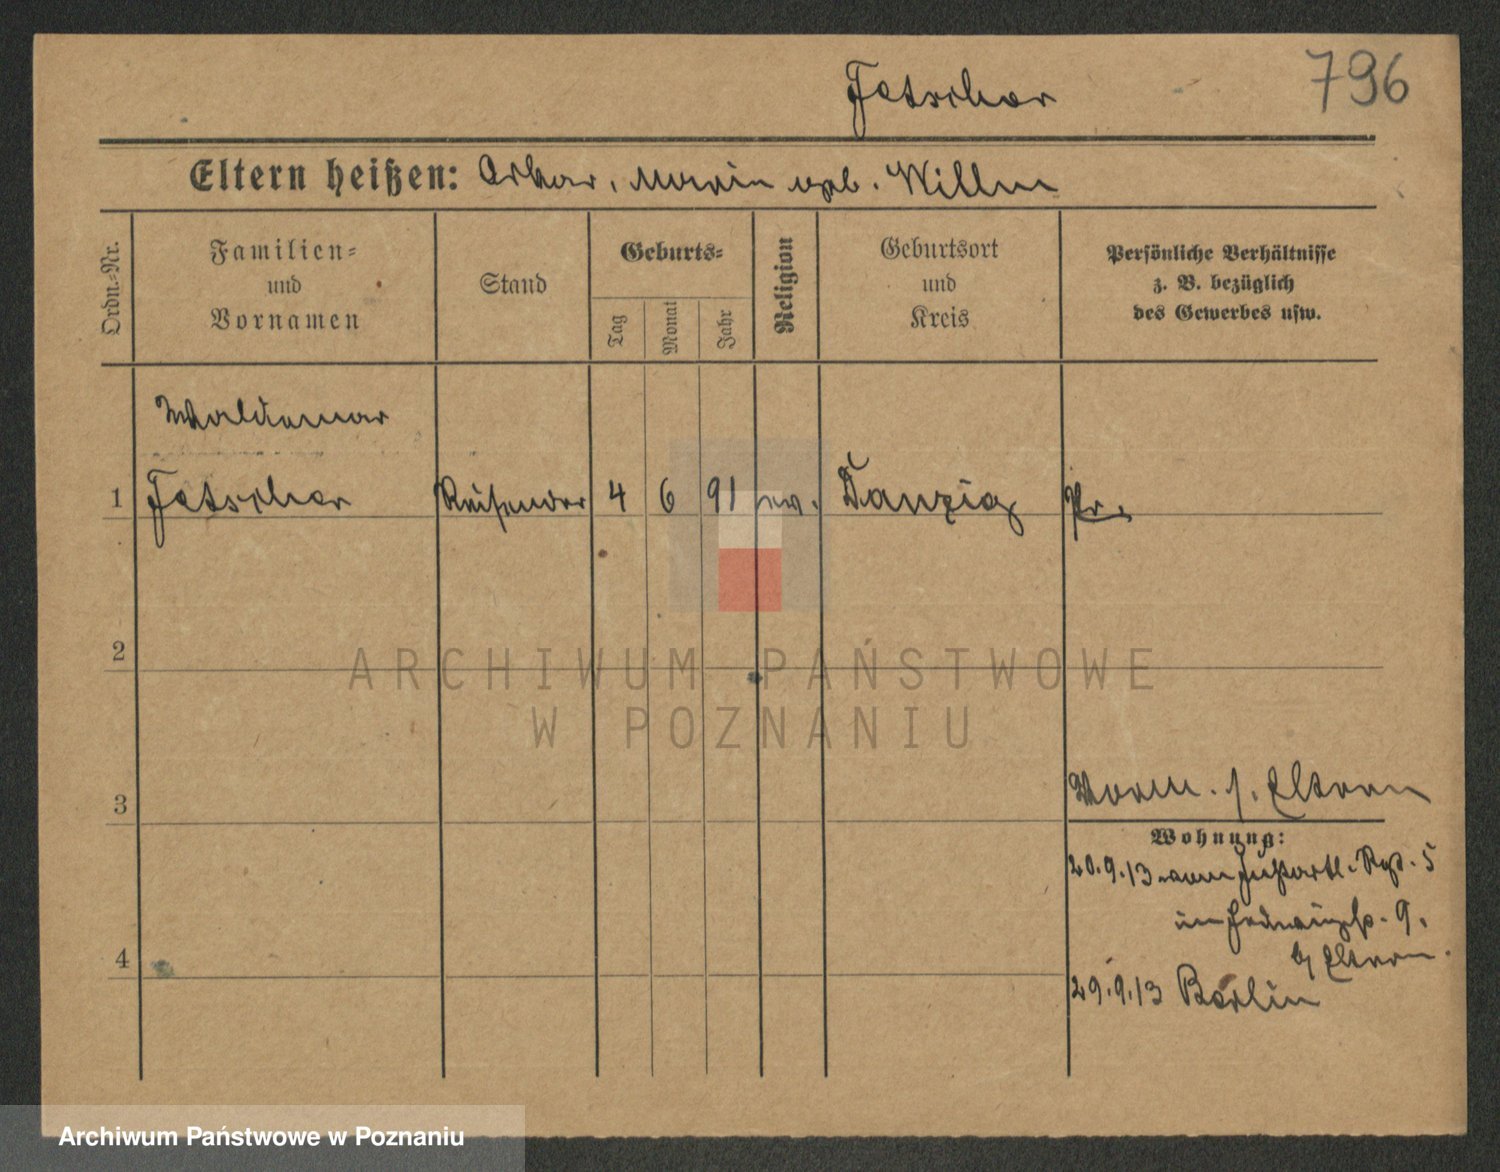 Fetscher
796
Eltern heißen: Oskar, Marie geb. Willm
Ordn.=Nr.
Familien=
und
Vornamen
Stand
Geburts=
Tag
Monat
Jahr
Religion
Geburtsort
und
Kreis
Persönliche Verhältnisse
z. B. bezüglich
des Gewerbes usw.
Waldemar
1 Fetscher Reisender 4 6 91 ev. Danzig Pr.
2
ARCHIWUM PAŃSTWOWE
W POZNANIU
3
Vorm. s. Eltern
Wohnung:
20.9.13 vom Fußartl. Rgt. 5
in 9.
b/ Eltern.
4
29.9.13 Berlin
Archiwum Państwowe w Poznaniu